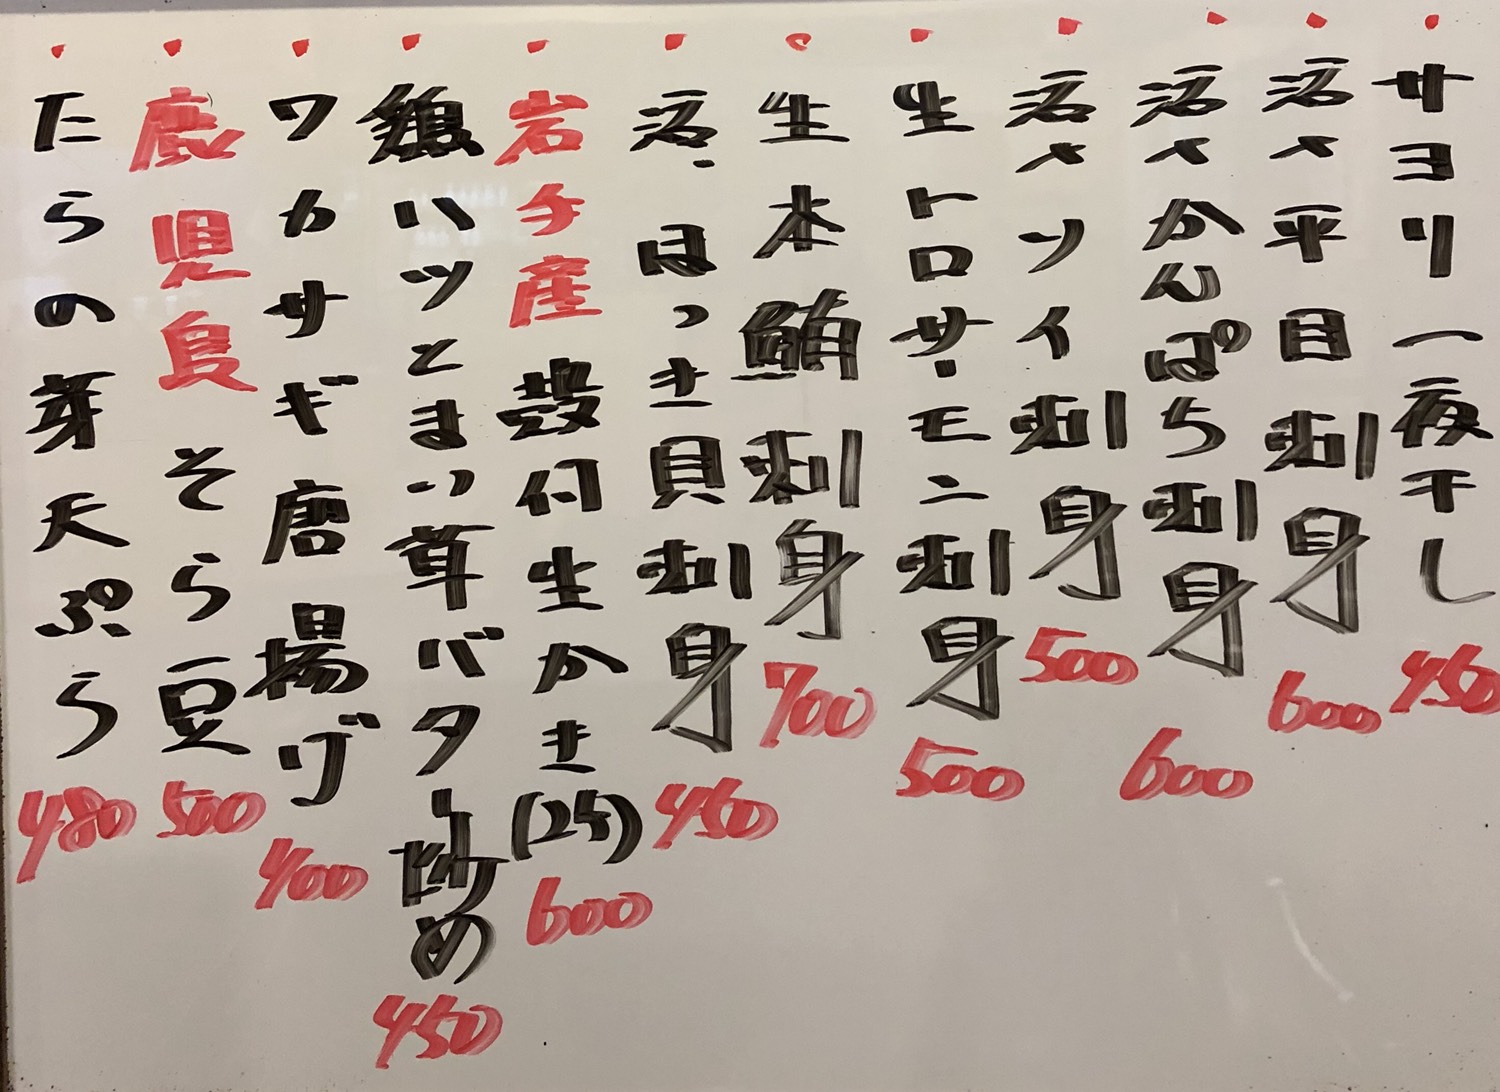 サヨリ一夜干し 450
活〆平目刺身 600
活〆かんぱち刺身 600
活〆ソイ刺身 500
生トロサーモン刺身 500
生本鮪刺身 700
活、ほっき貝刺身 450
岩手産 殻付生かき(2ケ) 600
鶏ハツとまいい茸バター炒め 450
ワカサギ唐揚げ 400
鹿児島 そら豆 500
たらの芽天ぷら 480